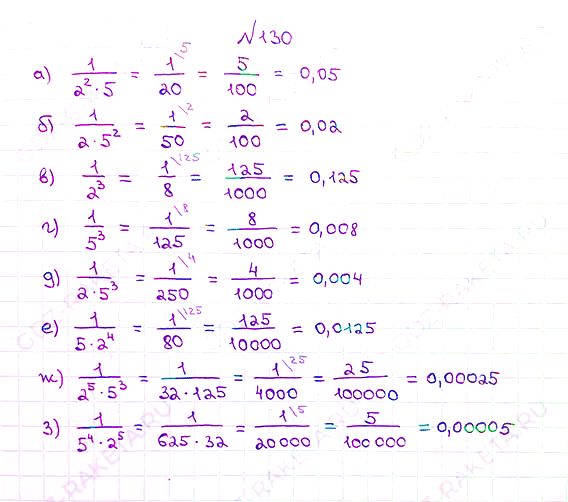 N130
а) 1/(2²·5) = 1\5/20 = 5/100 = 0,05
б) 1/(2·5²) = 1\2/50 = 2/100 = 0,02
в) 1/2³ = 1\125/8 = 125/1000 = 0,125
г) 1/5³ = 1\8/125 = 8/1000 = 0,008
д) 1/(2·5³) = 1\4/250 = 4/1000 = 0,004
е) 1/(5·2⁴) = 1\125/80 = 125/10000 = 0,0125
ж) 1/(2⁵·5³) = 1/(32·125) = 1\25/4000 = 25/100000 = 0,00025
з) 1/(5⁴·2⁵) = 1/(625·32) = 1\5/20000 = 5/100000 = 0,00005